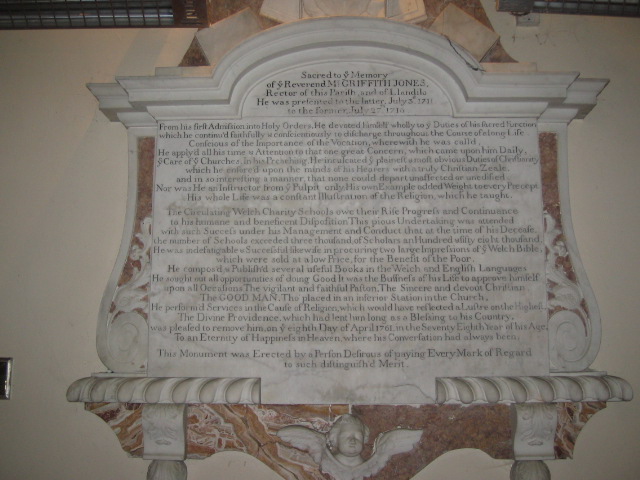 Sacred to yͤ Memory
of yͤ Reverend Mr GRIFFITH JONES,
Rector of this Parish, and of Llandilo
He was presented to the latter, July 3d 1711
to the former, July 27 1716
From his first Admission into Holy Orders, He devoted himself wholly to yͤ Duties of his sacred Function
which he continu'd faithfully & conscienciously to discharge throughout the Course of a long Life
Conscious of the Importance of the Vocation, wherewith he was call'd
He apply'd all his time & Attention to that one great Concern, which came upon him Daily,
yͤ Care of yͤ Churches. In his Preaching, He inculcated yͤ plainest & most obvious Duties of Christianity
which he enforc'd upon the minds of his Hearers with a truly Christian Zeale,
and in so interesting a manner, that none could depart unaffected or unedified
Nor was He an Instructor from yͤ Pulpit only His own Example added Weight to every Precept
His whole Life was a constant Illustration of the Religion, which he taught.
The Circulating Welch Charity Schools owe their Rise Progress and Continuance
to his humane and beneficent Disposition This pious Undertaking was attended
with such Success under his Management and Conduct that at the time of his Decease,
the number of Schools exceeded three thousand, of Scholars an Hundred & fifty eight thousand
He was indefatigable & Successful likewise in procuring two large Impressions of yͤ Welch Bible,
which were sold at a low Price, for the Benefit of the Poor.
He compos'd & Publish'd several useful Books in the Welch and English Languages
He sought out all opportunities of doing Good It was the Business of his Life to approve himself
upon all Occasions The vigilant and faithful Pastor, The Sincere and devout Christian.
The GOOD MAN. Tho' placed in an inferior Station in the Church,
He perform'd Services in the Cause of Religion, which would have reflected a Lustre on the Highest.
The Divine Providence, which had lent him long as a Blessing to his Country,
was pleased to remove him, on yͤ eighth Day of April 1761, in the Seventy Eighth Year of his Age,
To an Eternity of Happiness in Heaven, where his Conversation had always been.
This Monument was Erected by a Person Desirous of paying Every Mark of Regard
to such distinguish'd Merit.